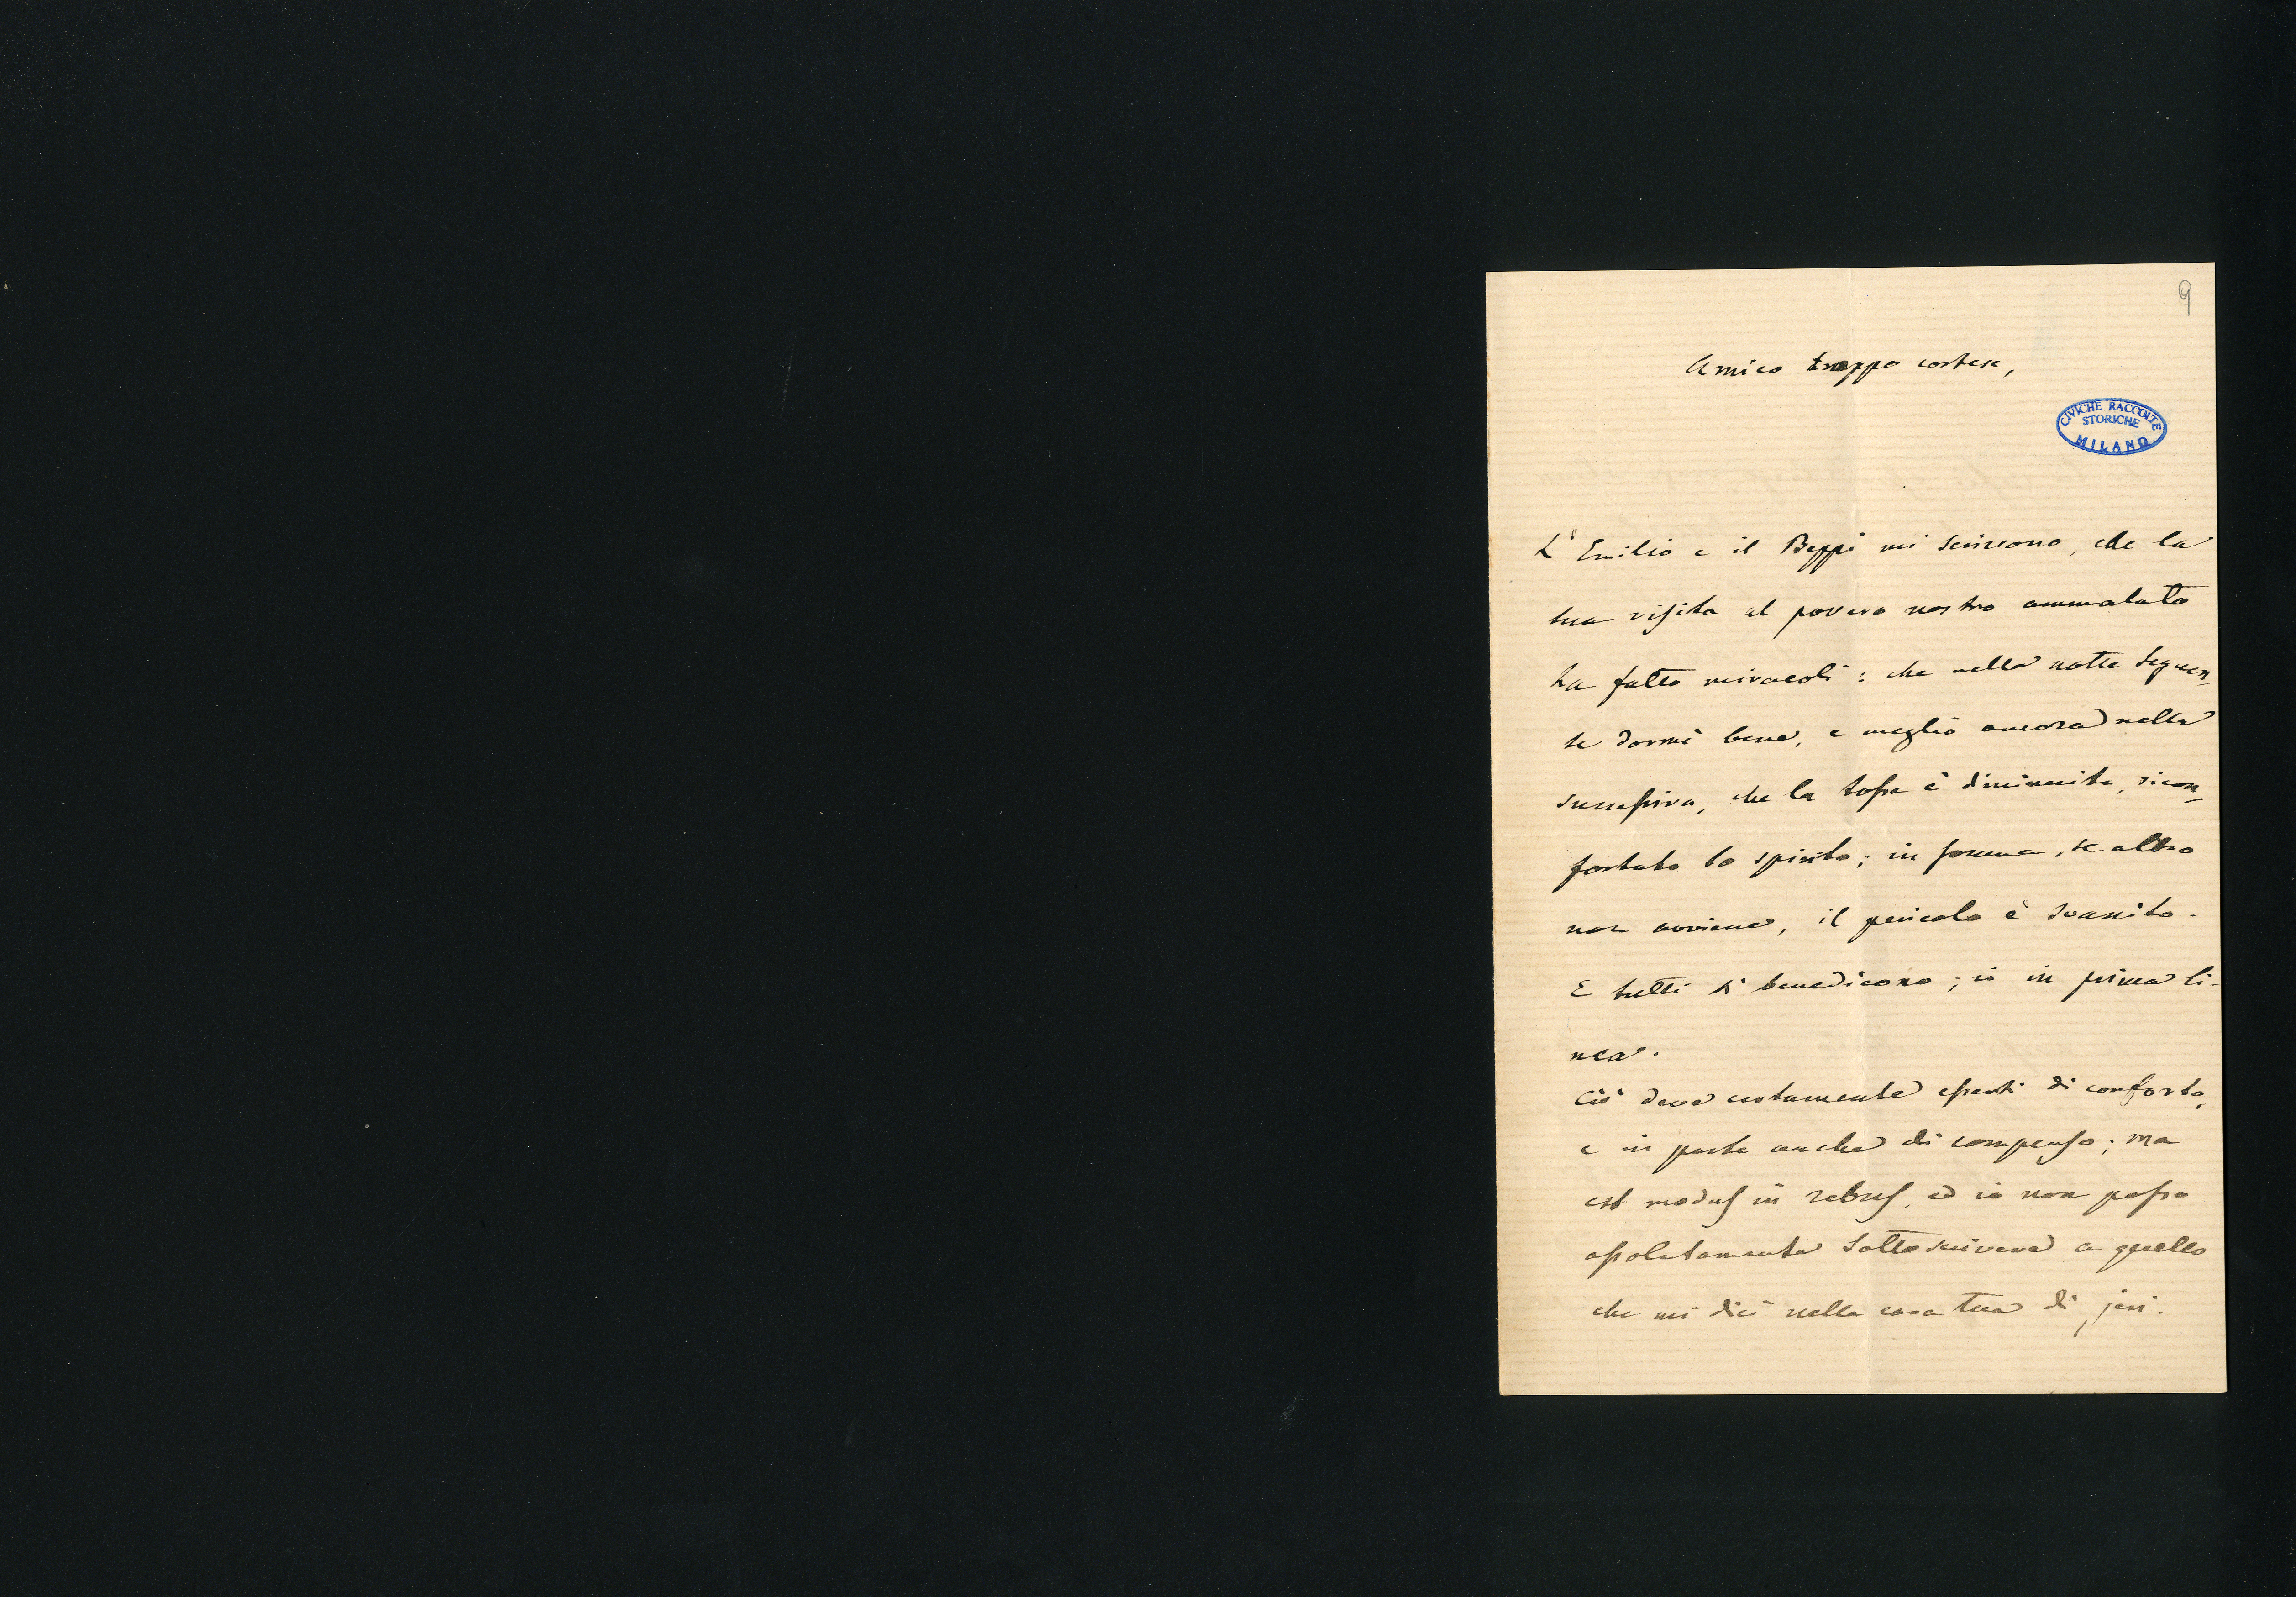 9
Amico troppo cortese,
CIVICHE RACCOLTE
STORICHE
MILANO
L'Emilio e il Beppi mi scrissono, che la
tua visita al povero nostro ammalato
ha fatto miracoli: che nella notte seguen-
te dormì bene, e meglio ancora nella
successiva, che la tosse è diminuita, ricon-
fortato lo spirito; in somma, se altro
non avviene, il pericolo è svanito.
E tutti ti benedicono; io in prima li-
nea.
Ciò deve certamente esserti di conforto,
e in parte anche di compenso; ma
est modus in rebus, ed io non posso
assolutamente sottoscrivere a quello
che mi dici nella cara tua di jeri.